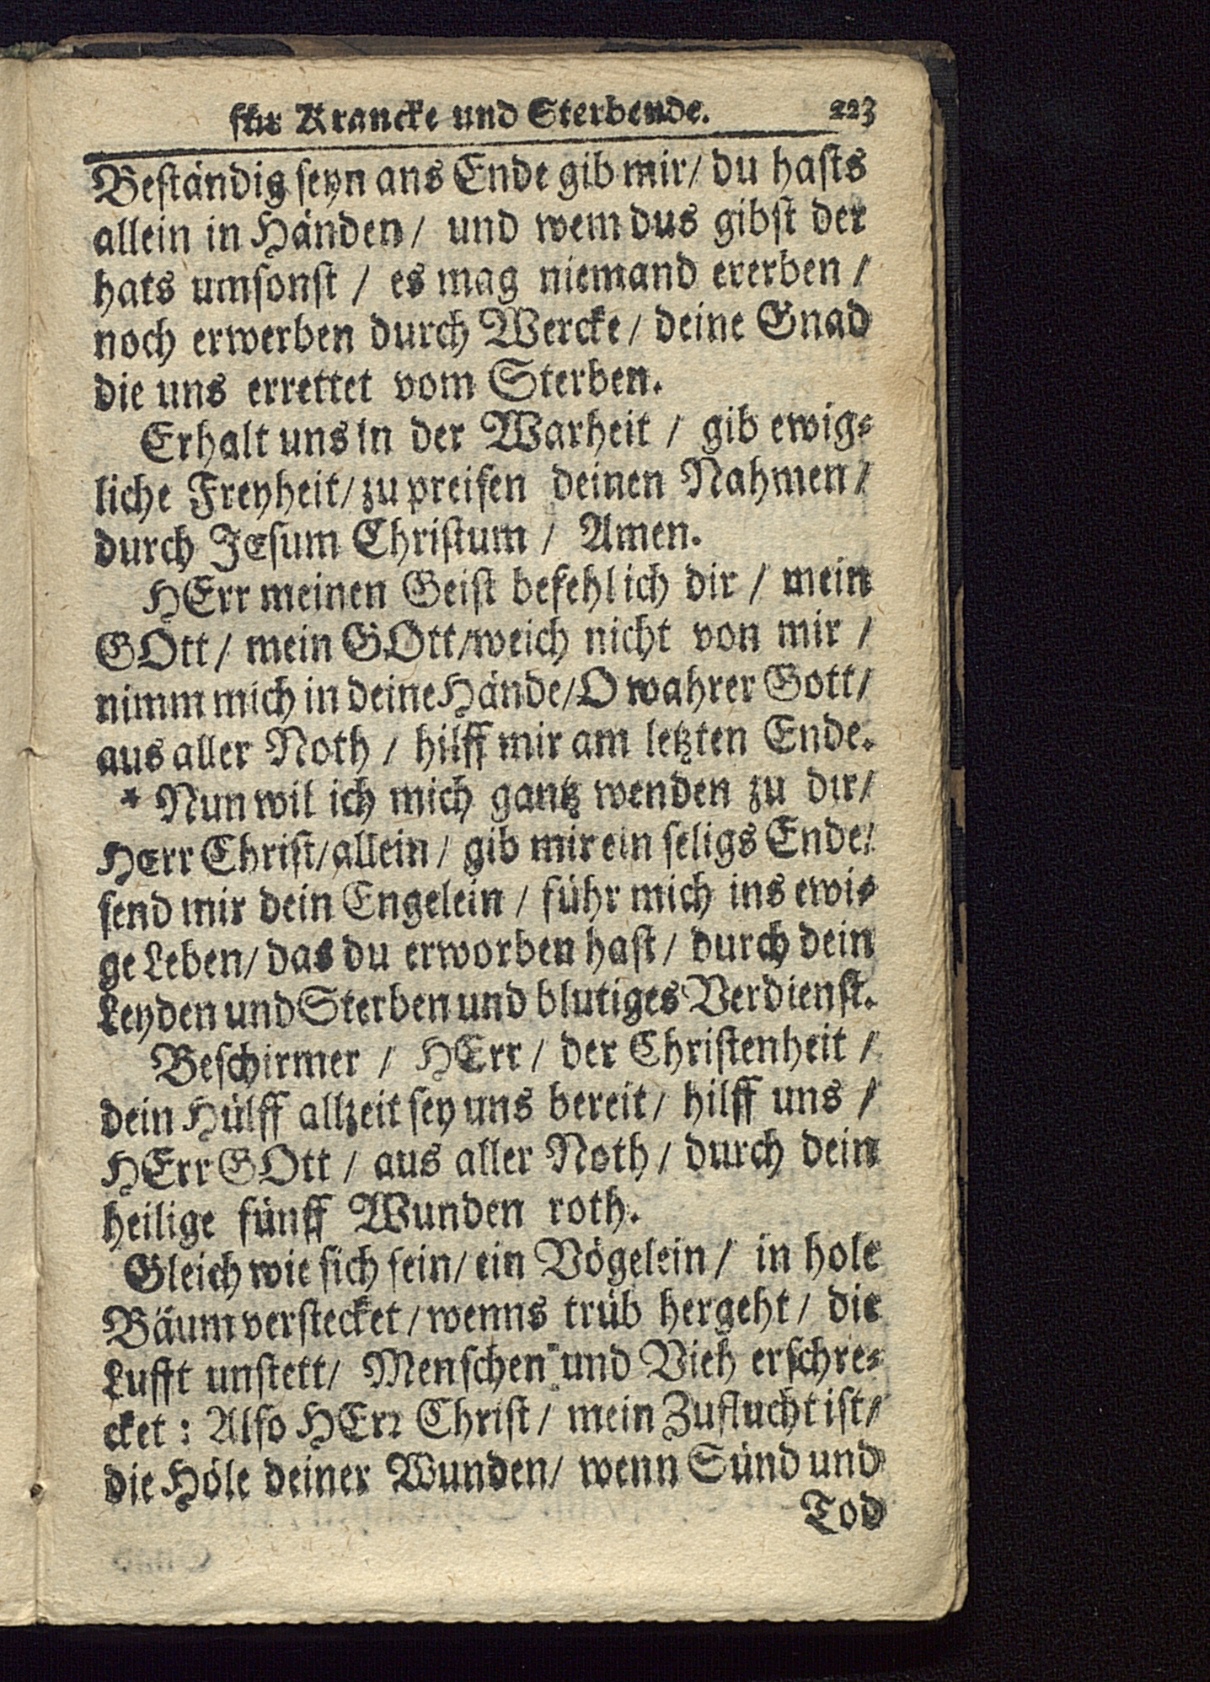 für Krancke und Sterbende. 223
Beständig seyn ans Ende gib mir/ du hasts
allein in Händen/ und wem dus gibst der
hats umsonst / es mag niemand ererben /
noch erwerben durch Wercke/ deine Gnad
die uns errettet vom Sterben.
Erhalt uns in der Warheit / gib ewig-
liche Freyheit/ zu preisen deinen Nahmen/
durch JEsum Christum / Amen.
HErr meinen Geist befehl ich dir / mein
GOtt/ mein GOtt/weich nicht von mir /
nimm mich in deine Hände/O wahrer Gott/
aus aller Noth / hilff mir am letzten Ende.
* Nun wil ich mich gantz wenden zu dir/
HErr Christ/allein / gib mir ein seligs Ende/
send mir dein Engelein / führ mich ins ewi-
ge Leben/ das du erworben hast/ durch dein
Leyden und Sterben und blutiges Verdienst.
Beschirmer / HErr/ der Christenheit /
dein Hülff allzeit sey uns bereit/ hilff uns /
HErr GOtt / aus aller Noth/ durch dein
heilige fünff Wunden roth.
Gleich wie sich fein/ ein Vögelein/ in hole
Bäum verstecket/wenns trüb hergeht/ die
Lufft unstett/ Menschen und Vieh erschre-
cket: Also HErr Christ/ mein Zuflucht ist/
die Höle deiner Wunden/ wenn Sünd und
Tod